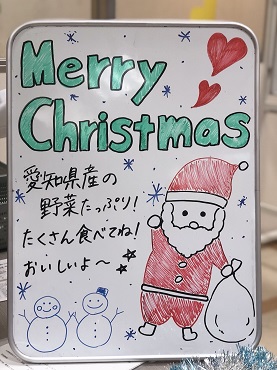 Merry
Christmas
愛知県産の
野菜たっぷり!
たくさん食べてね!
おいしいよ〜